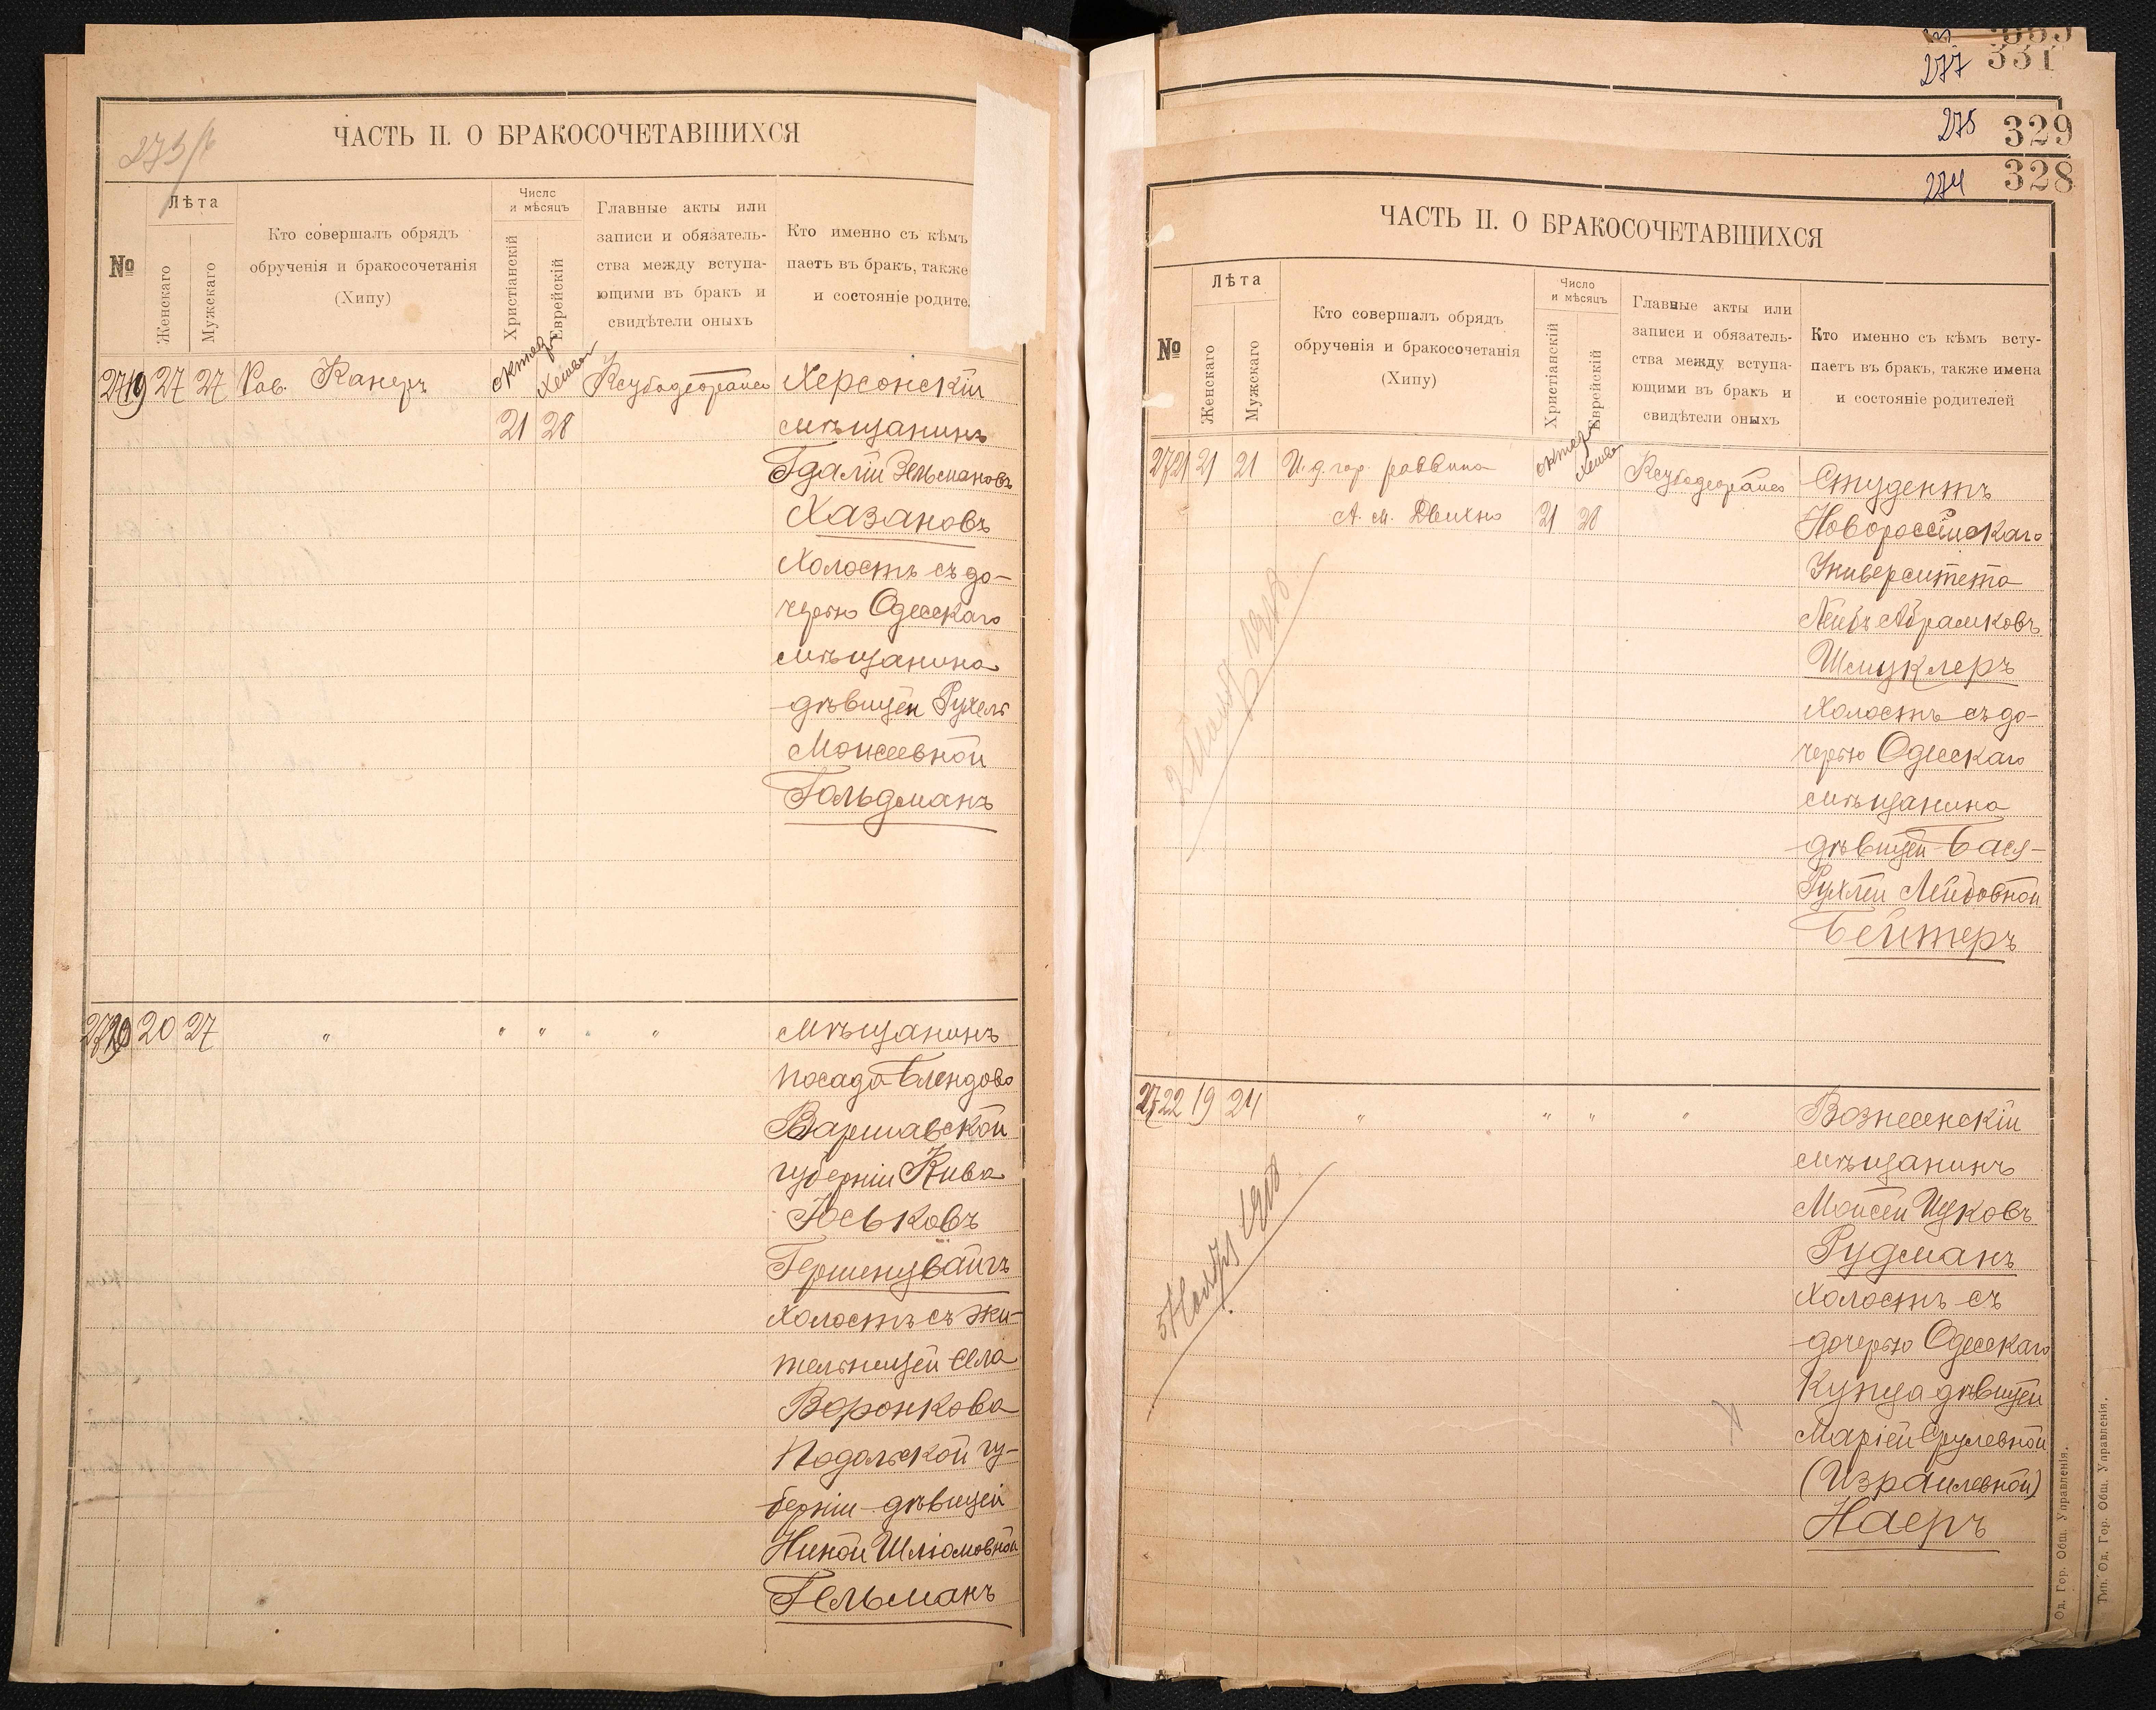 ЧАСТЬ II. О БРАКОСОЧЕТАВШИХСЯ
№
Лѣта
Женскаго
Мужскаго
Кто совершалъ обрядъ
обрученія и бракосочетанія
(Хипу)
Число
и мѣсяцъ
Христіанскій
Еврейскій
Главные акты или
записи и обязатель-
ства между вступа-
ющими въ бракъ и
свидѣтели оныхъ
Кто именно съ кѣмъ
паетъ въ бракъ, также
и состояніе родите
2719 27 27 Рав. Канеръ
21 28
Херсонскій
мѣщанинъ
Гдалій Зельмановъ
Хазановъ
холостъ съ до-
черью Одесскаго
мѣщанина
дѣвицей Рухелъ
Моисеевной
Гольдманъ
2720 20 27 " " " " "
Мѣщанинъ
посада Блендово
Варшавской
губерніи Кива
Юськовъ
Гершенцвайгъ
холостъ съ жи-
тельницей села
Воронкова
Подольской гу-
берніи дѣвицей
Хиной Шліомовной
Гельманъ
277 331
275 329
274 328
ЧАСТЬ II. О БРАКОСОЧЕТАВШИХСЯ
№
Лѣта
Женскаго
Мужскаго
Кто совершалъ обрядъ
обрученія и бракосочетанія
(Хипу)
Число
и мѣсяцъ
Христіанскій
Еврейскій
Главные акты или
записи и обязатель-
ства между вступа-
ющими въ бракъ и
свидѣтели оныхъ
Кто именно съ кѣмъ всту-
паетъ въ бракъ, также имена
и состояніе родителей
2721 21 21 И. д. гор. раввина
А. М. 21 28
Студентъ
Новороссійскаго
Университета
Лейбъ Абрамковъ
Шмуклеръ
холостъ съ до-
черью Одесскаго
мѣщанина
дѣвицей Бася-
Рухлей Лейбовной
Бейтеръ
2722 19 24 " " " "
Вознесенскій
мѣщанинъ
Мойсей Ицковъ
Рудманъ
холостъ съ
дочерью Одесскаго
купца дѣвицей
Маріей Срулевной
(Израилевной)
Наеръ
Од. Гор. Общ. Управленія.
Тип. Од. Гор. Общ. Управленія.